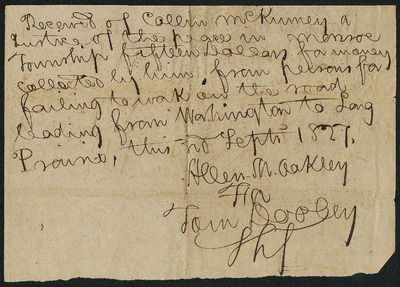 Received of Collin McKinney a
Justice of the peace in monroe
Township fifteen Dollars for money
collected by him from persons for
failing to wok on the roads
leading from Washington to Long
Prairie, this Septr 1827.
Allen M. Oakley
For
Tom Dooley
Shf